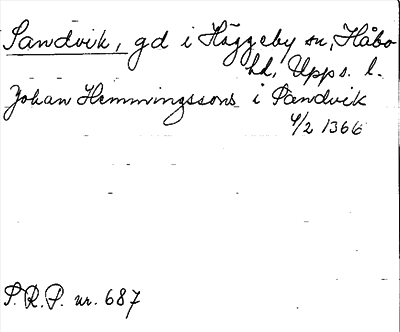 Sandvik, gd i Häggeby sn, Håbo
hd, Upps. l.
Johan Hemmingssons i Sandvik
4/2 1366
S.R.P. nr. 687